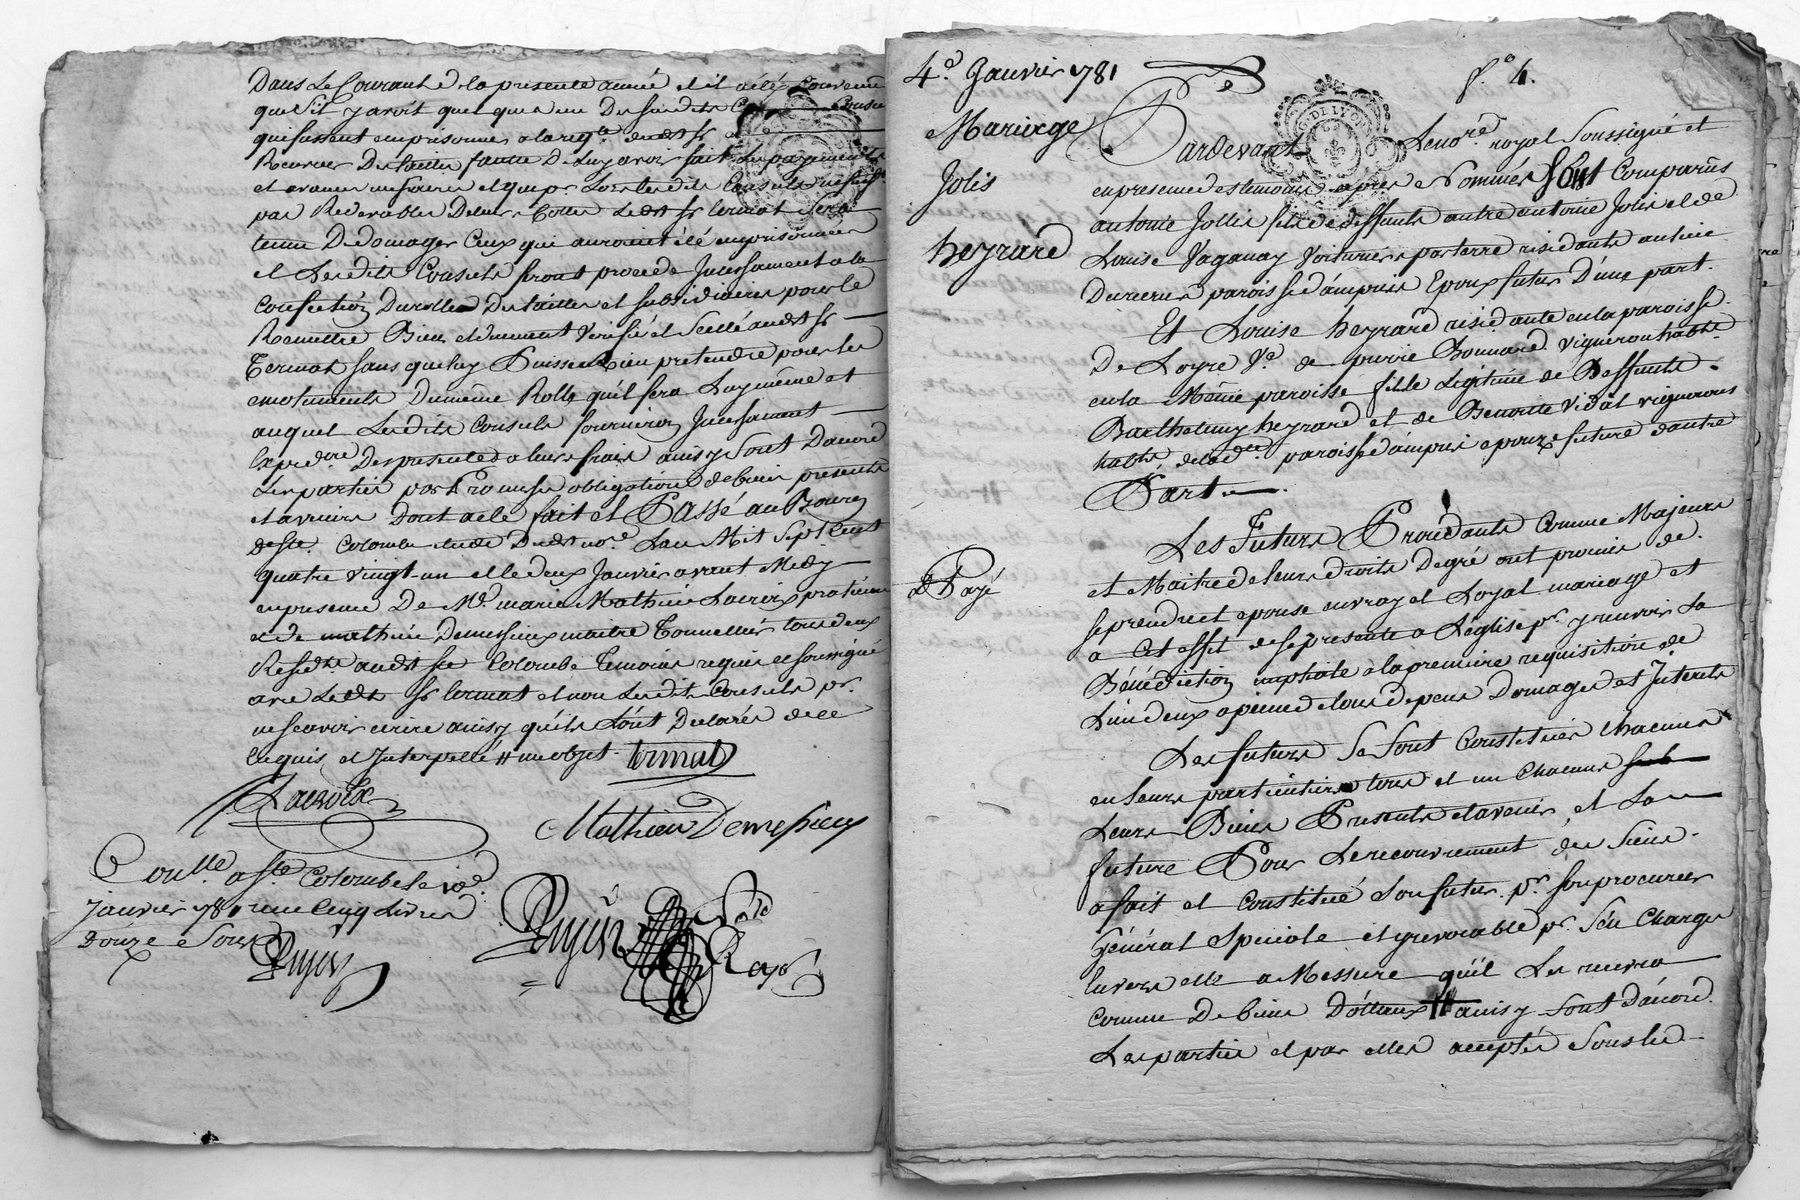 Dans le Courant de la presente année et il a été Convenu
que s'il y avoit quelqu'un Desdits Consuls
qui fussent emprisonnes a la req.te dudt sr
Receveur Des tailles faute De luy avoir fait les payements
et avances necessaires et que pr Lors lesdits Consuls ne fussent
pas Redevables De leurs Cottes Ledt sr termat sera
tenu De Domager Ceux qui auroint été emprisonnés
et Lesdits Consuls feront proceder Incessament a la
Confection Du rolle Des tailles et subsidiaires pour le
Remettre Bien et dument Verifié et Scellé audt sr
termat sans que luy Puisse Rien pretendre pour les
emoluments Du même Rolle qu'il fera Luy même et
auquel Lesdits Consuls fourniron Incessament
Expedre Des presentes a leurs frais ainsy sont Dacord
Les parties par Promesse obligation de biens presents
et avenirs Dont acte fait et Passé au Bourg
de ste Colombe etude Dudt nore Lan Mil Sept Cent
quatre vingt un et le deux Janvier avant Midy
en presence De Mr. marie Mathieu Lacroix praticien
et de mathieu Demessieux maitre Tonnellier tous deux
Residts audt ste Colombe Temoins requis et soussigné
avec Ledt sr termat et non Lesdits Consuls pr.
ne scavoir ecrire ainsy qu'ils L'ont Declarés de ce
Enquis et Interpellé # une objet termat
Lacroix
Mathieu Demessieux
Conlle a ste Colombe le 10e
janvier 781 reçu Cinq Livres
Douze Sous
Pujin
Pujin
nore
Roy
4e. Janvier 781
fo. 4.
Mariage
Jolis
heyrard
Pardevant Le nore. royal Soussigné et
en presence des temoins apres Nommés sont Comparus
antoine Jollis fils de deffunts autre antoine Jolis et de
Louise Vaganay Voiturier par terre residant au lieu
Du rieux paroisse d'ampuis Epoux futur D'une part.
Et Louise heyrard residante en la paroisse
De Loyre Ve. de pierre Bonnard vigneron habtt.
en la Même paroisse fille Legitime de Deffunts
Barthelemy heyrard et de Benoite Vidal vignerons
habts. de lade. paroisse d'ampuis epouze future d'autre
Part.
Les Futurs Procedants Comme Majeurs
Payé
et Maitre de leurs droits Degré ont promis de.
se prendre et epouse en vray et Loyal mariage et
a Cet effet de se presenter a L'église pr. y recevoir La
Bénédiction nuptiale a la premiere requisition de
L'un deux a peine de tous depens Domages et Interets
Les futurs se sont Constitués chacuns
en leurs particuliers tous et un chacuns
Leurs Biens Presents et avenir, et La
future Pour Le recouvrement des Siens
a fait et Constitué Son futur pr. son procureur
Général Speciale et irrevocable pr. s'en Charger
Envers elle a Messure qu'il Les recevra
Comme De biens Dottaux # ainsy sont D'acord
Les parties et par elles acceptés Sous les